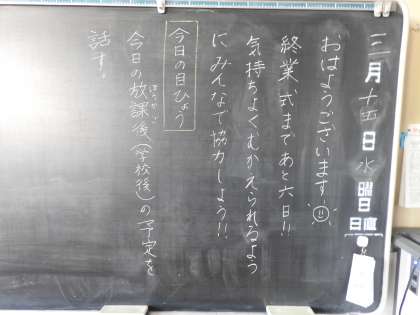 三月十五日水曜日
日直
おはようございます!!
終業式まであと六日!!
気持ちよくむかえられるよう
にみんなで協力しよう!!
今日の目ひょう
今日の放課後(学校後)の予定を
ほうかご
話す。